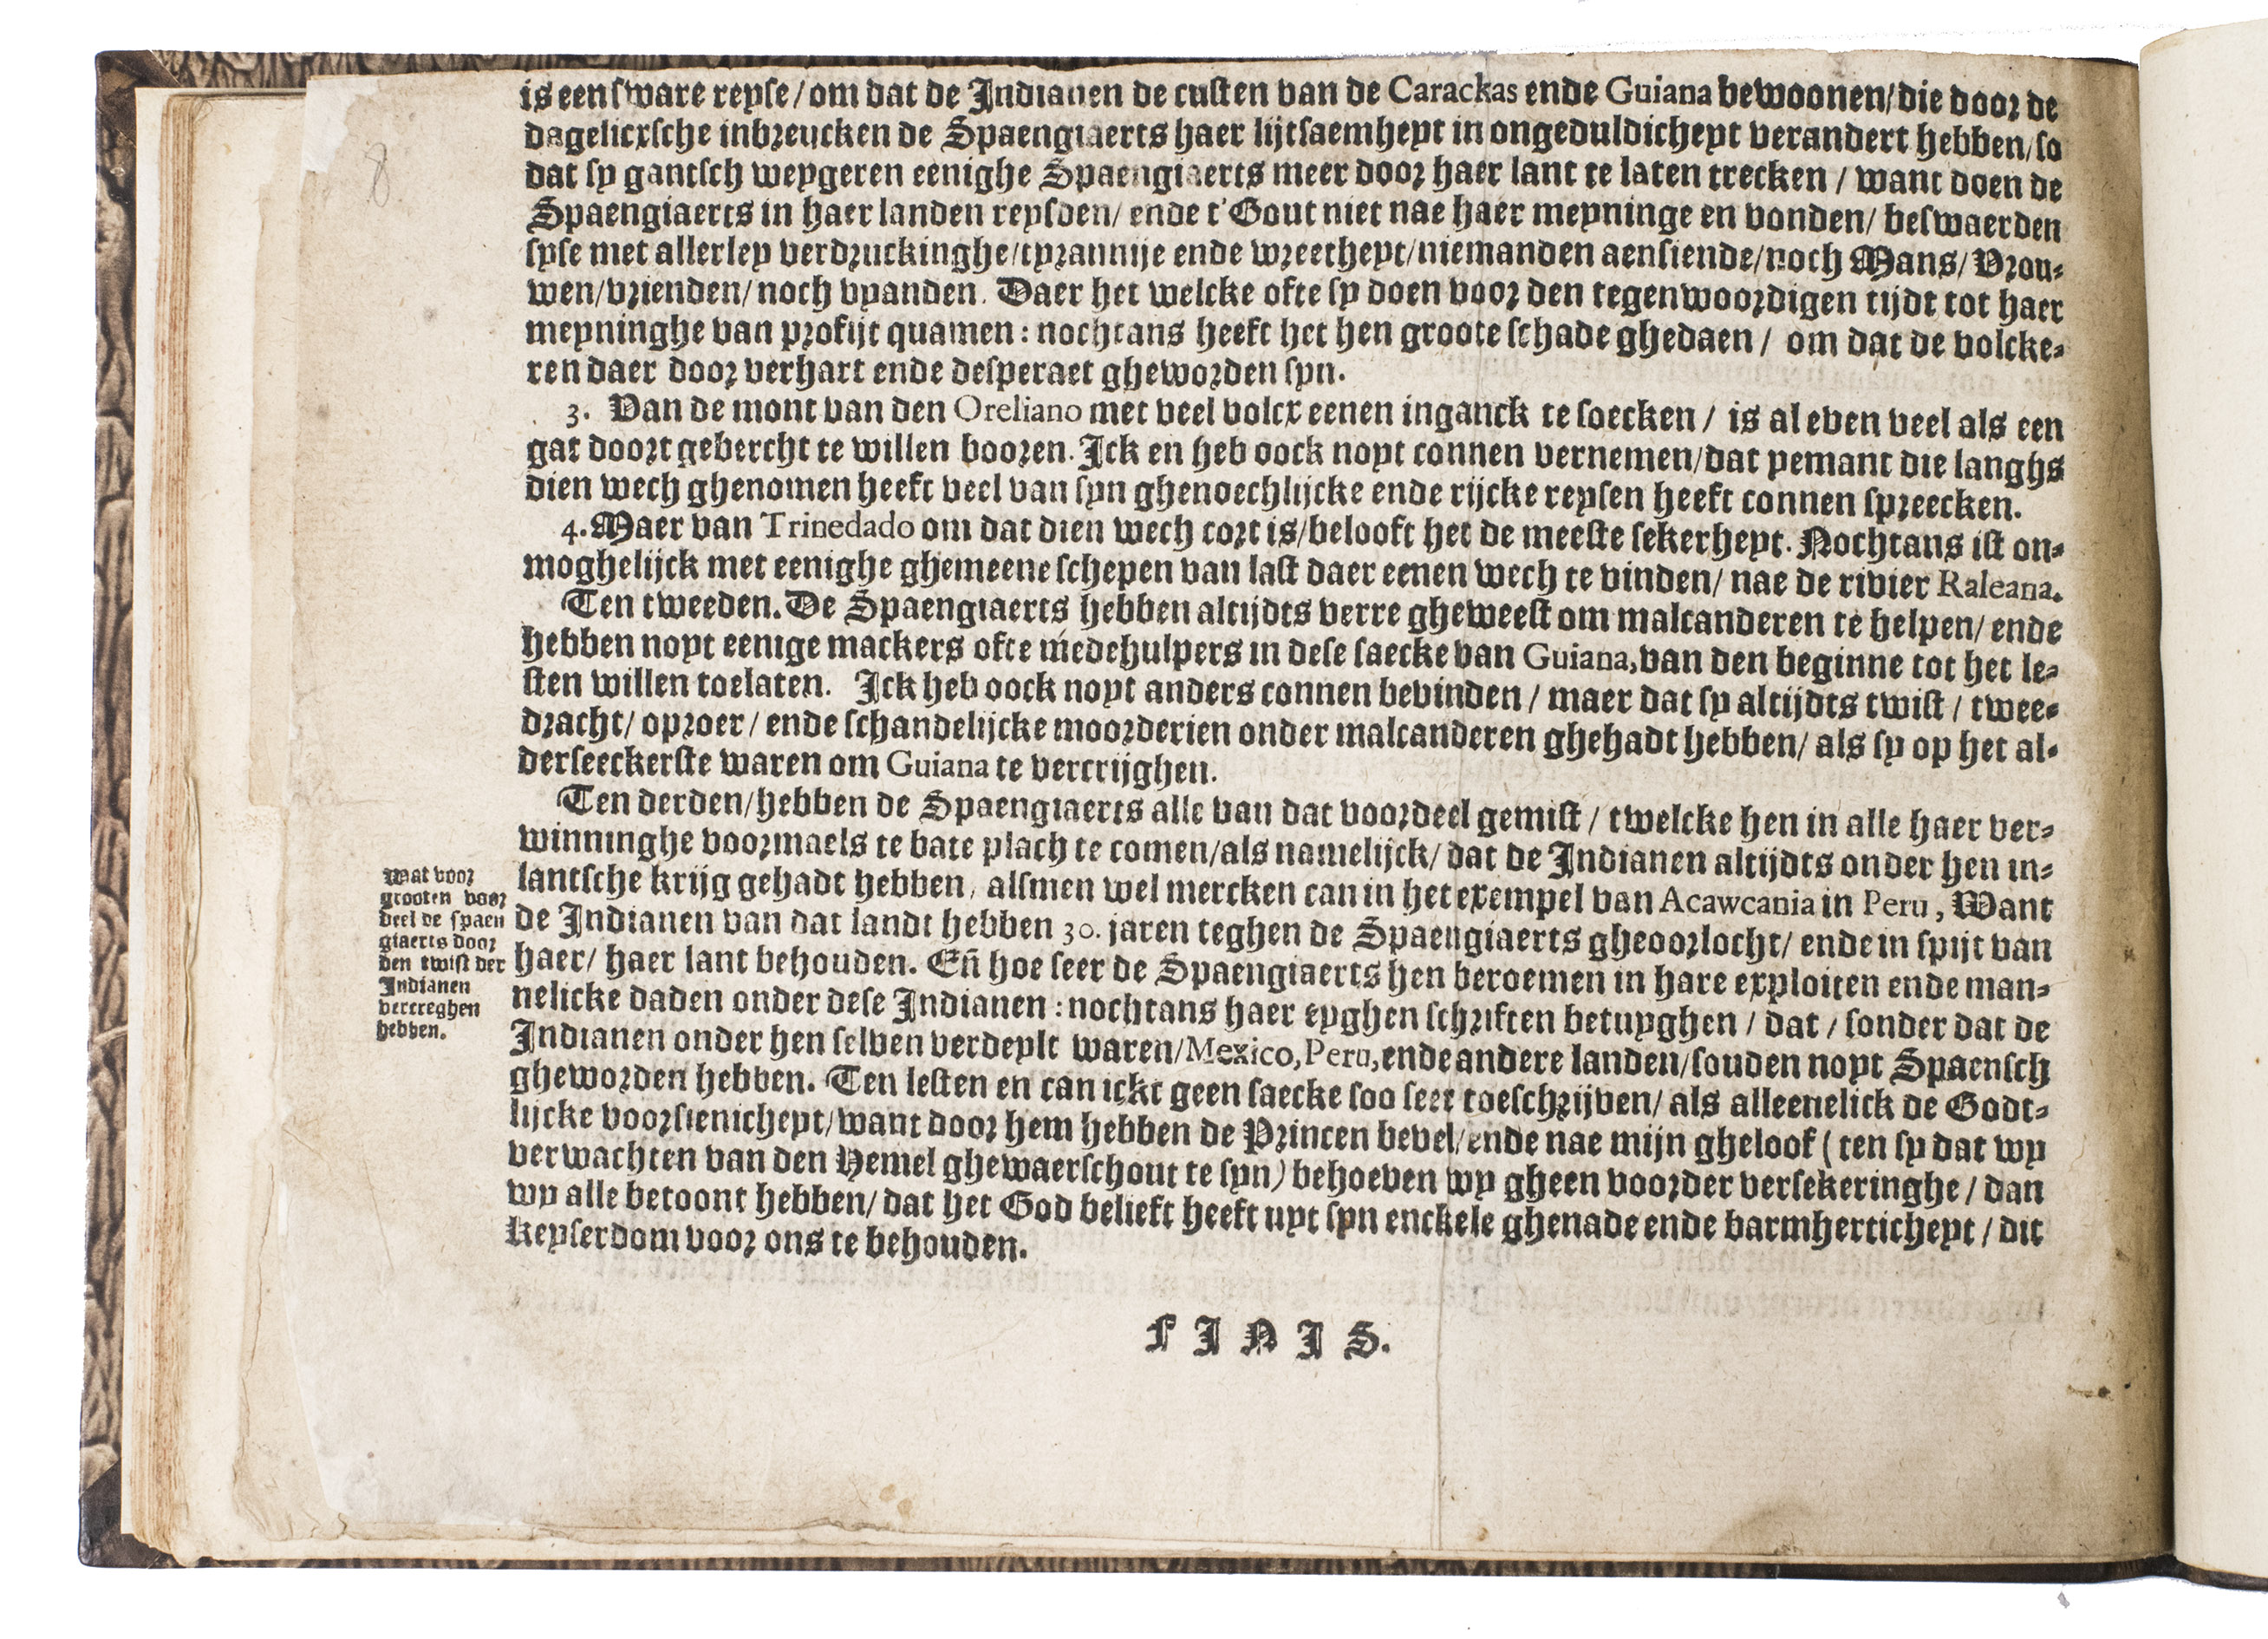 8
is een sware reyse/om dat de Indianen de custen van de Carackas ende Guiana bewoonen/die door de
dagelicxsche inbreucken de Spaengiaerts haer lijtsaemheyt in ongeduldicheyt verandert hebben/so
dat sy gantsch weygeren eenighe Spaengiaerts meer door haer lant te laten trecken / want doen de
Spaengiaerts in haer landen reysden/ ende t'Gout niet nae haer meyninge en vonden/ beswaerden
syse met allerley verdruckinghe/tyrannije ende wreetheyt/niemanden aensiende/noch Mans/ Vrou-
wen/vrienden/noch vyanden. Daer het welcke ofte sy doen voor den tegenwoordigen tijdt tot haer
meyninghe van profijt quamen: nochtans heeft het hen groote schade ghedaen / om dat de volcke-
ren daer door verhart ende desperaet gheworden syn.
3. Van de mont van den Oreliano met veel volcx eenen inganck te soecken / is al even veel als een
gat doort gebercht te willen booren. Ick en heb oock noyt connen vernemen/dat yemant die langhs
dien wech ghenomen heeft veel van syn ghenoechlijcke ende rijcke reysen heeft connen spreecken.
4. Maer van Trinedado om dat dien wech cort is/belooft het de meeste sekerheyt. Nochtans ist on-
moghelijck met eenighe ghemeene schepen van last daer eenen wech te vinden/ nae de rivier Raleana.
Ten tweeden. De Spaengiaerts hebben altijdts verre gheweest om malcanderen te helpen/ ende
hebben noyt eenige mackers ofte medehulpers in dese saecke van Guiana, van den beginne tot het le-
sten willen toelaten. Ick heb oock noyt anders connen bevinden / maer dat sy altijdts twist / twee-
dracht/ oproer / ende schandelijcke moorderien onder malcanderen ghehadt hebben/ als sy op het al-
derseeckerste waren om Guiana te vercrijghen.
Ten derden/hebben de Spaengiaerts alle van dat voordeel gemist / twelcke hen in alle haer ver-
winninghe voormaels te bate plach te comen/als namelijck/ dat de Indianen altijdts onder hen in-
lantsche krijg gehadt hebben, alsmen wel mercken can in het exempel van Acawcania in Peru, Want
de Indianen van dat landt hebben 30. jaren teghen de Spaengiaerts gheoorlocht/ ende in spijt van
haer/ haer lant behouden. Eñ hoe seer de Spaengiaerts hen beroemen in hare exploiten ende man-
nelicke daden onder dese Indianen: nochtans haer eyghen schriften betuyghen / dat / sonder dat de
Indianen onder hen selven verdeylt waren/Mexico, Peru, ende andere landen/souden noyt Spaensch
gheworden hebben. Ten lesten en can ickt geen saecke soo seer toeschrijven/ als alleenelick de Godt-
lijcke voorsienicheyt/want door hem hebben de Princen bevel/ende nae mijn gheloof (ten sy dat wy
verwachten van den Hemel ghewaerschout te syn) behoeven wy gheen voorder versekeringhe / dan
wy alle betoont hebben/ dat het God belieft heeft uyt syn enckele ghenade ende barmherticheyt / dit
Keyserdom voor ons te behouden.
Wat voor
grooten voor
deel de spaen
giaerts door
den twist der
Indianen
vercreghen
hebben.
FINIS.